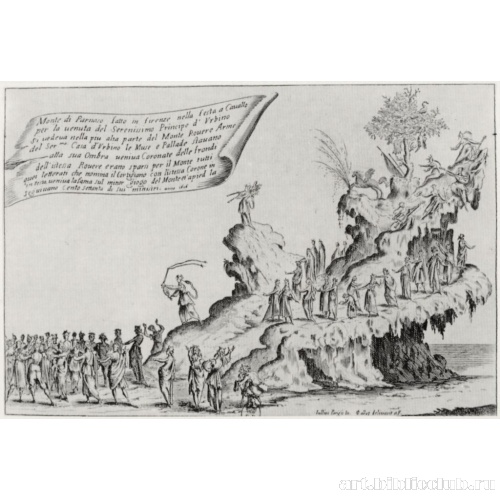 Monte di Parnaso fatto in firenze nella festa a Cavallo
per la venuta del Serenissimo Principe d' Urbino
Si vedeva nella piu alta parte del Monte Rovere Arme
del Ser.mo Casa d'Urbino le Muse e Pallade stavano
alla sua Ombra veniva Coronate delle frondi
dell'istesa Rovere erano sparsi per il Monte tutti
quei letterati che nomina il Cortigiano con l'istesa Corone in
testa, la fama sul minor giogo del Monte
Cento di Sui ministri
art.biblioclub.ru